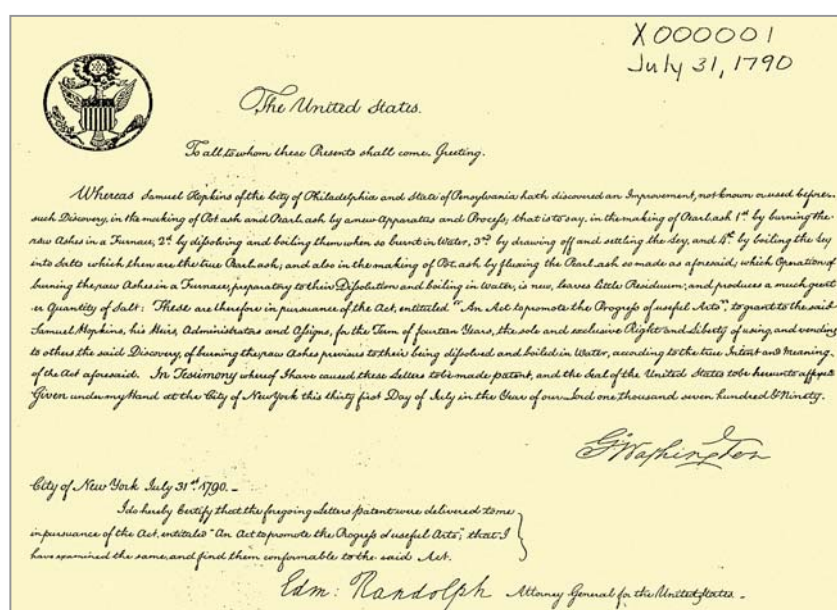 X000001
July 31, 1790
The United States.
To all to whom these Presents shall come. Greeting.
Whereas Samuel Hopkins of the City of Philadelphia and State of Pensylvania hath discovered an Improvement, not known or used before
such Discovery, in the making of Pot ash and Pearl ash by a new Apparatus and Process; that is to say, in the making of Pearl ash 1st by burning the
raw Ashes in a Furnace, 2d by dissolving and boiling them when so burnt in Water, 3rd by drawing off and settling the Ley, and 4th by boiling the Ley
into Salts which then are the true Pearl ash; and also in the making of Pot ash by fluxing the Pearl ash so made as aforesaid; which Operation of
burning the raw Ashes in a Furnace, preparatory to their Dissolution and boiling in Water, is new, leaves little Residuum; and produces a much great
er Quantity of Salt: These are therefore in pursuance of the Act, entituled "An Act to promote the Progress of useful Arts", to grant to the said
Samuel Hopkins, his Heirs, Administrators and Assigns, for the Term of fourteen Years, the sole and exclusive Right and Liberty of using and vending
to others the said Discovery, of burning the raw Ashes previous to their being dissolved and boiled in Water, according to the true Intent and Meaning
of the Act aforesaid. In Testimony whereof I have caused these Letters to be made patent, and the Seal of the United States to be hereunto affixed
Given under my Hand at the City of New York this thirty first Day of July in the Year of our Lord one thousand seven hundred & Ninety.
G Washington
City of New York July 31st 1790.
I do hereby Certify that the foregoing Letters patent were delivered to me
in pursuance of the Act, entituled "An Act to promote the Progress of useful Arts"; that I
have examined the same, and find them conformable to the said Act.
Edm: Randolph Attorney General for the United States.